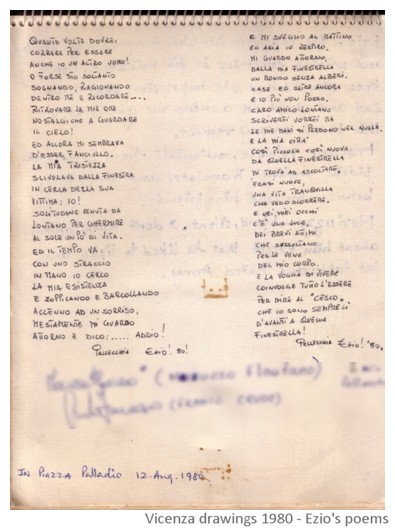 QUANTE VOLTE DOVREI
CORRERE PER ESSERE
ANCHE IO UN ALTRO UOMO!
O FORSE STO SOLTANTO
SOGNANDO, RAGIONANDO
DENTRO ME E RICORDARE....
RITROVARE LE MIE ORE
NOSTALGICHE A GUARDARE
IL CIELO!
ED ALLORA MI SEMBRAVA
D'ESSER FANCIULLO.
LA MIA TRISTEZZA
SCIVOLAVA DALLA FINESTRA
IN CERCA DELLA SUA
VITTIMA: IO!
SOLITUDINE VENUTA DA
LONTANO PER GHERMIRE
AL SOLE UN PO' DI VITA.
ED IL TEMPO VA..
CON UNO STRACCIO
IN MANO IO CERCO
LA MIA ESISTENZA
E ZOPPICANDO E BARCOLLANDO
ACCENNO AD UN SORRISO,
MESTAMENTE MI GUARDO
ATTORNO E DICO:..... ADDIO!
PELLECCHIA EZIO! 80!
E MI SVEGLIO AL MATTINO
ED ARIA IO RESPIRO.
MI GUARDO ATTORNO,
DALLA MIA FINESTRELLA
UN MONDO SENZA ALBERI,
CASE ED OLTRE ANCORA
E IO PIÙ NON POSSO.
CARO AMICO LONTANO
SCRIVERTI VORREI MA
LE MIE MANI SI PERDONO NEL NULLA.
E LA MIA CITTA'
COSÌ PICCOLA COSÌ NUOVA
DA QUELLA FINESTRELLA
MI TROVO AD ASCOLTARE,
FRASI NUOVE,
UNA VITA TRANQUILLA
CHE VEDO SCORRERE.
E NEI MIEI OCCHI
C'È UNA LUCE,
DEI BREVI ATTIMI
CHE
PER LE VENE
DEL MIO CORPO.
E LA VOGLIA DI VIVERE
COINVOLGE TUTTO L'ESSERE
PER DIRE AL "CESCO"
CHE IO SONO SEMPRE LÌ
D'AVANTI A QUELLA
FINESTRELLA!
PELLECCHIA EZIO! '80.
IN PIAZZA PALLADIO 12. Aug. 1980
Vicenza drawings 1980 - Ezio's poems